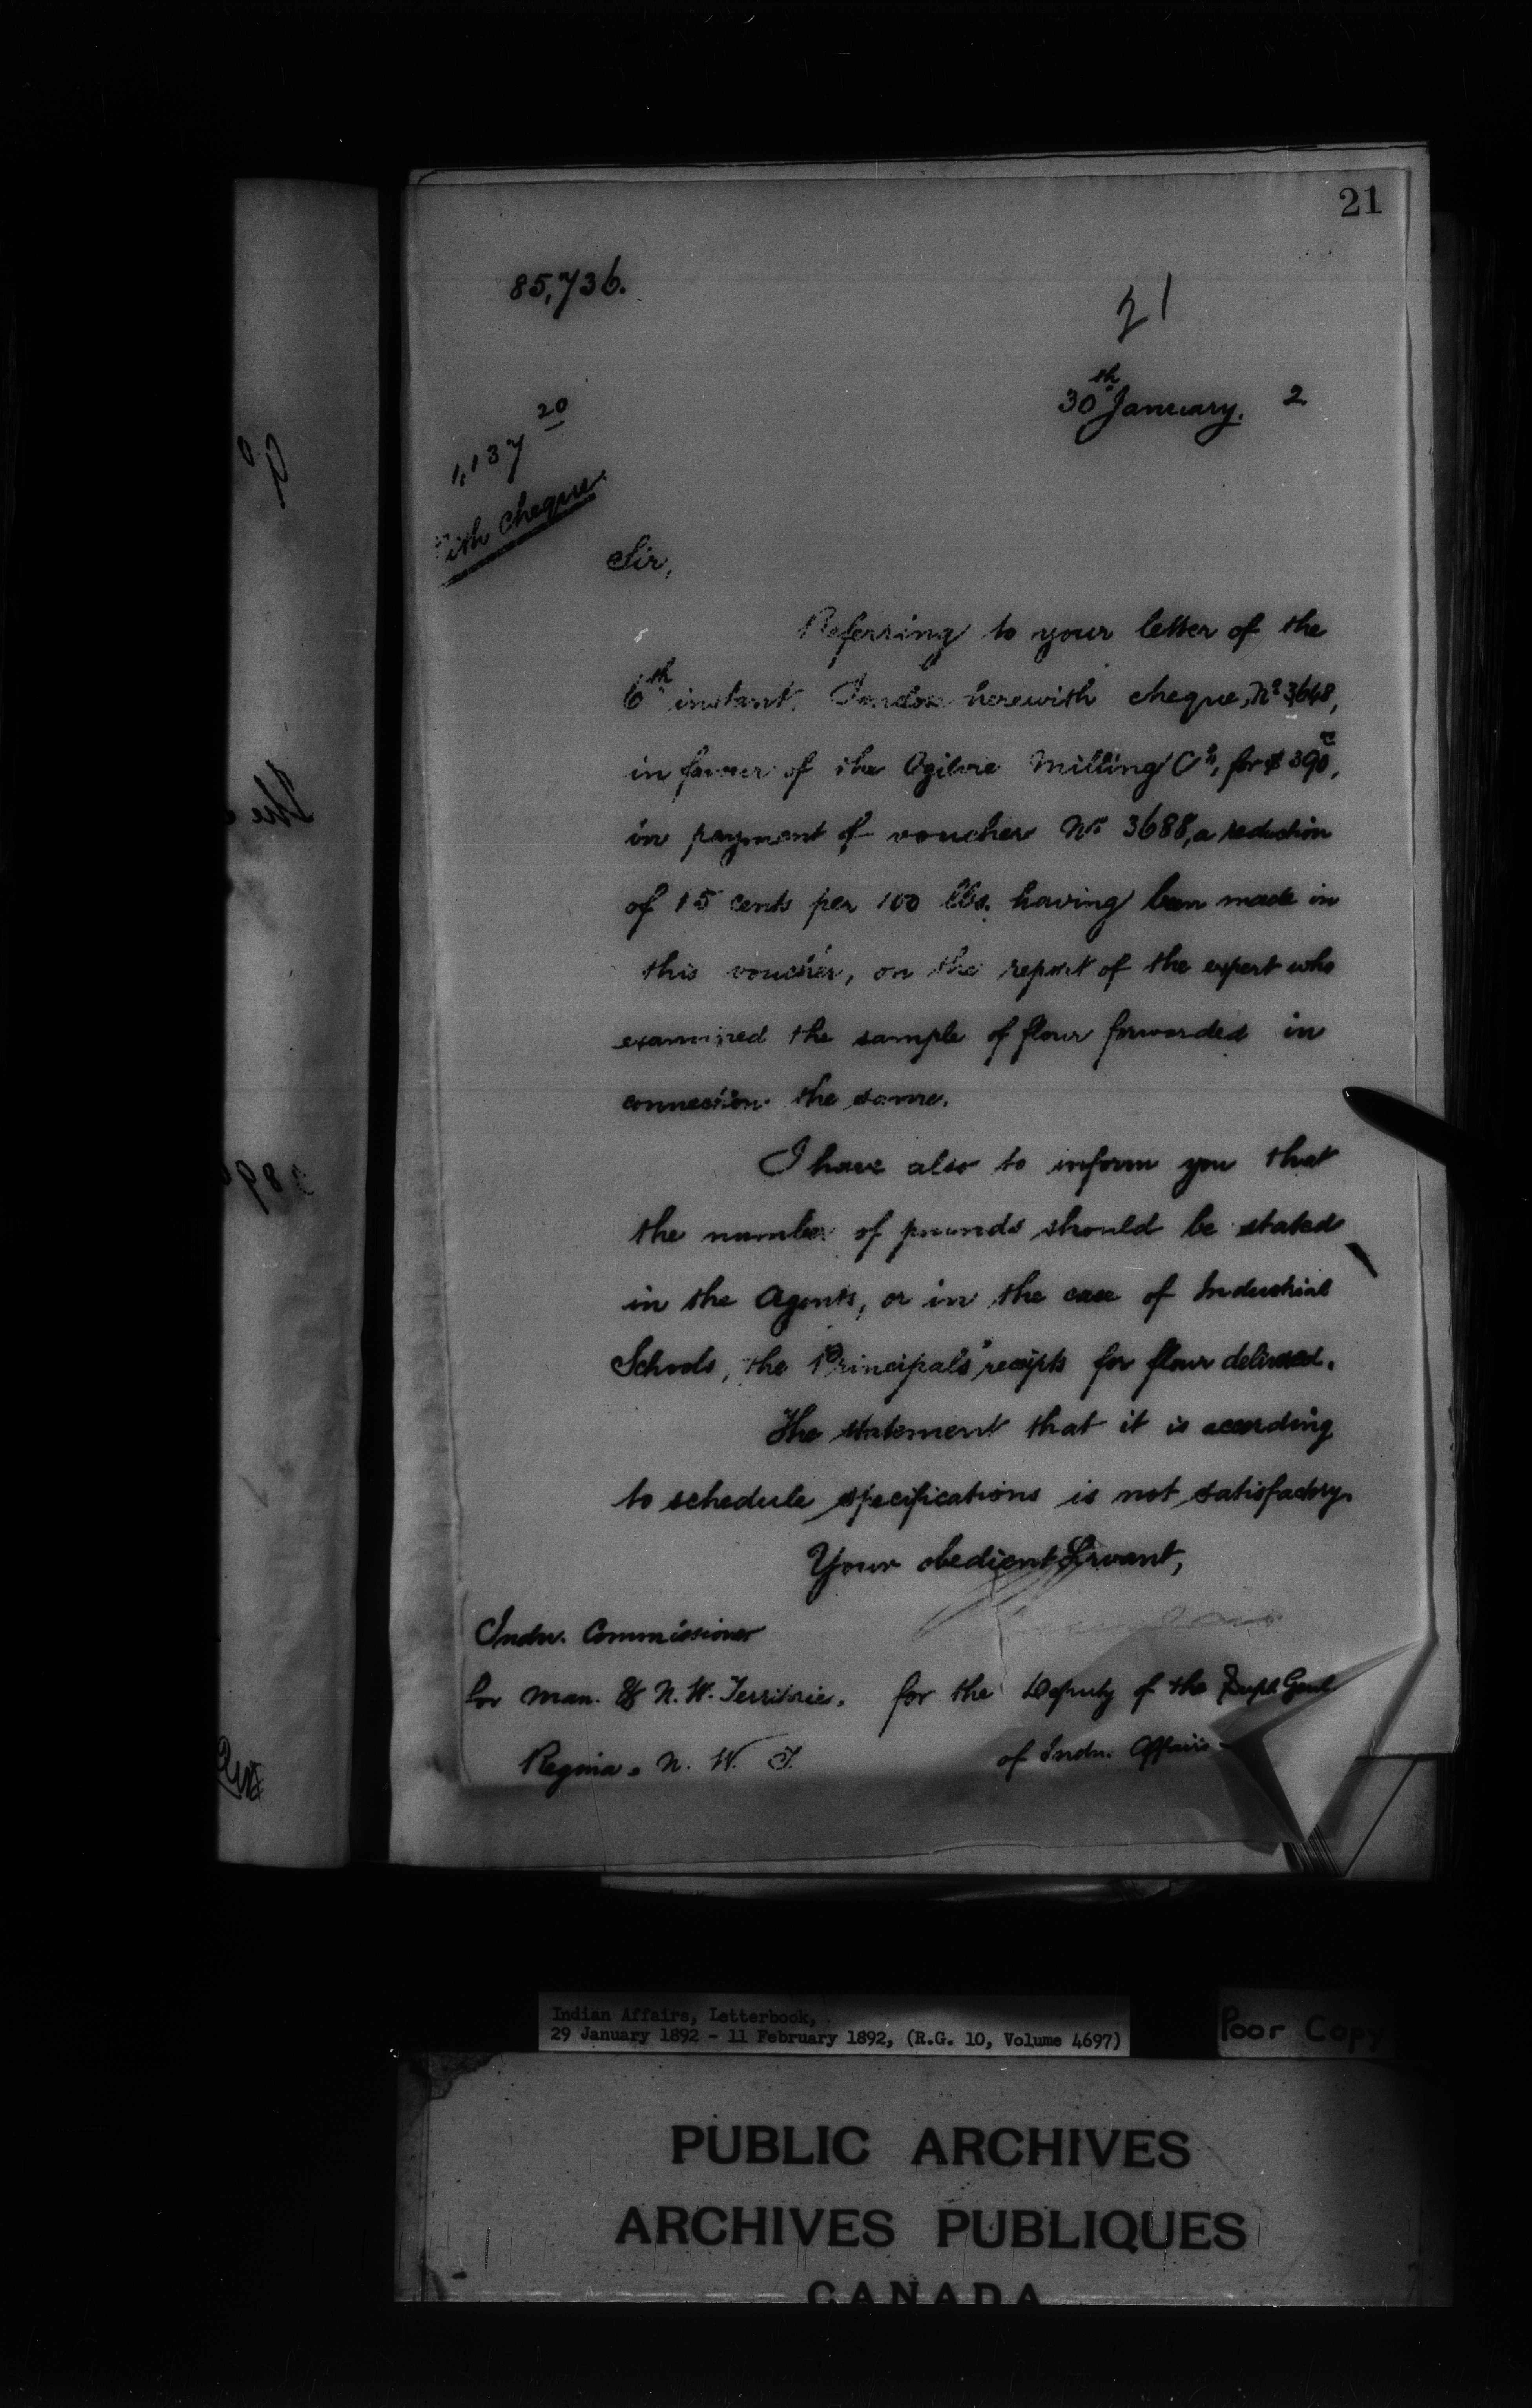 21
85,736.
21
30th January. 2
1,137 20
cheque
Sir,
Referring to your letter of the
6th instant, I enclose herewith cheque, No 3648,
in favour of the Ogilvie Milling Co, for $390,
in payment of voucher No 3688, a reduction
of 15 cents per 100 lbs. having been made in
this voucher, on the report of the expert who
examined the sample of flour forwarded in
connection the same.
I have also to inform you that
the number of pounds should be stated
in the Agents, or in the case of Industrial
Schools, the Principals' receipts for flour delivered.
The statement that it is according
to schedule specifications is not satisfactory.
Your obedient Servant,
Indn. Commissioner
for Man. & N. W. Territories. for the Deputy of the Supt. Genl
Regina. N. W. T. of Indn. Affairs
Indian Affairs, Letterbook,
29 January 1892 - 11 February 1892, (R.G. 10, Volume 4697)
Poor Copy
PUBLIC ARCHIVES
ARCHIVES PUBLIQUES
CANADA